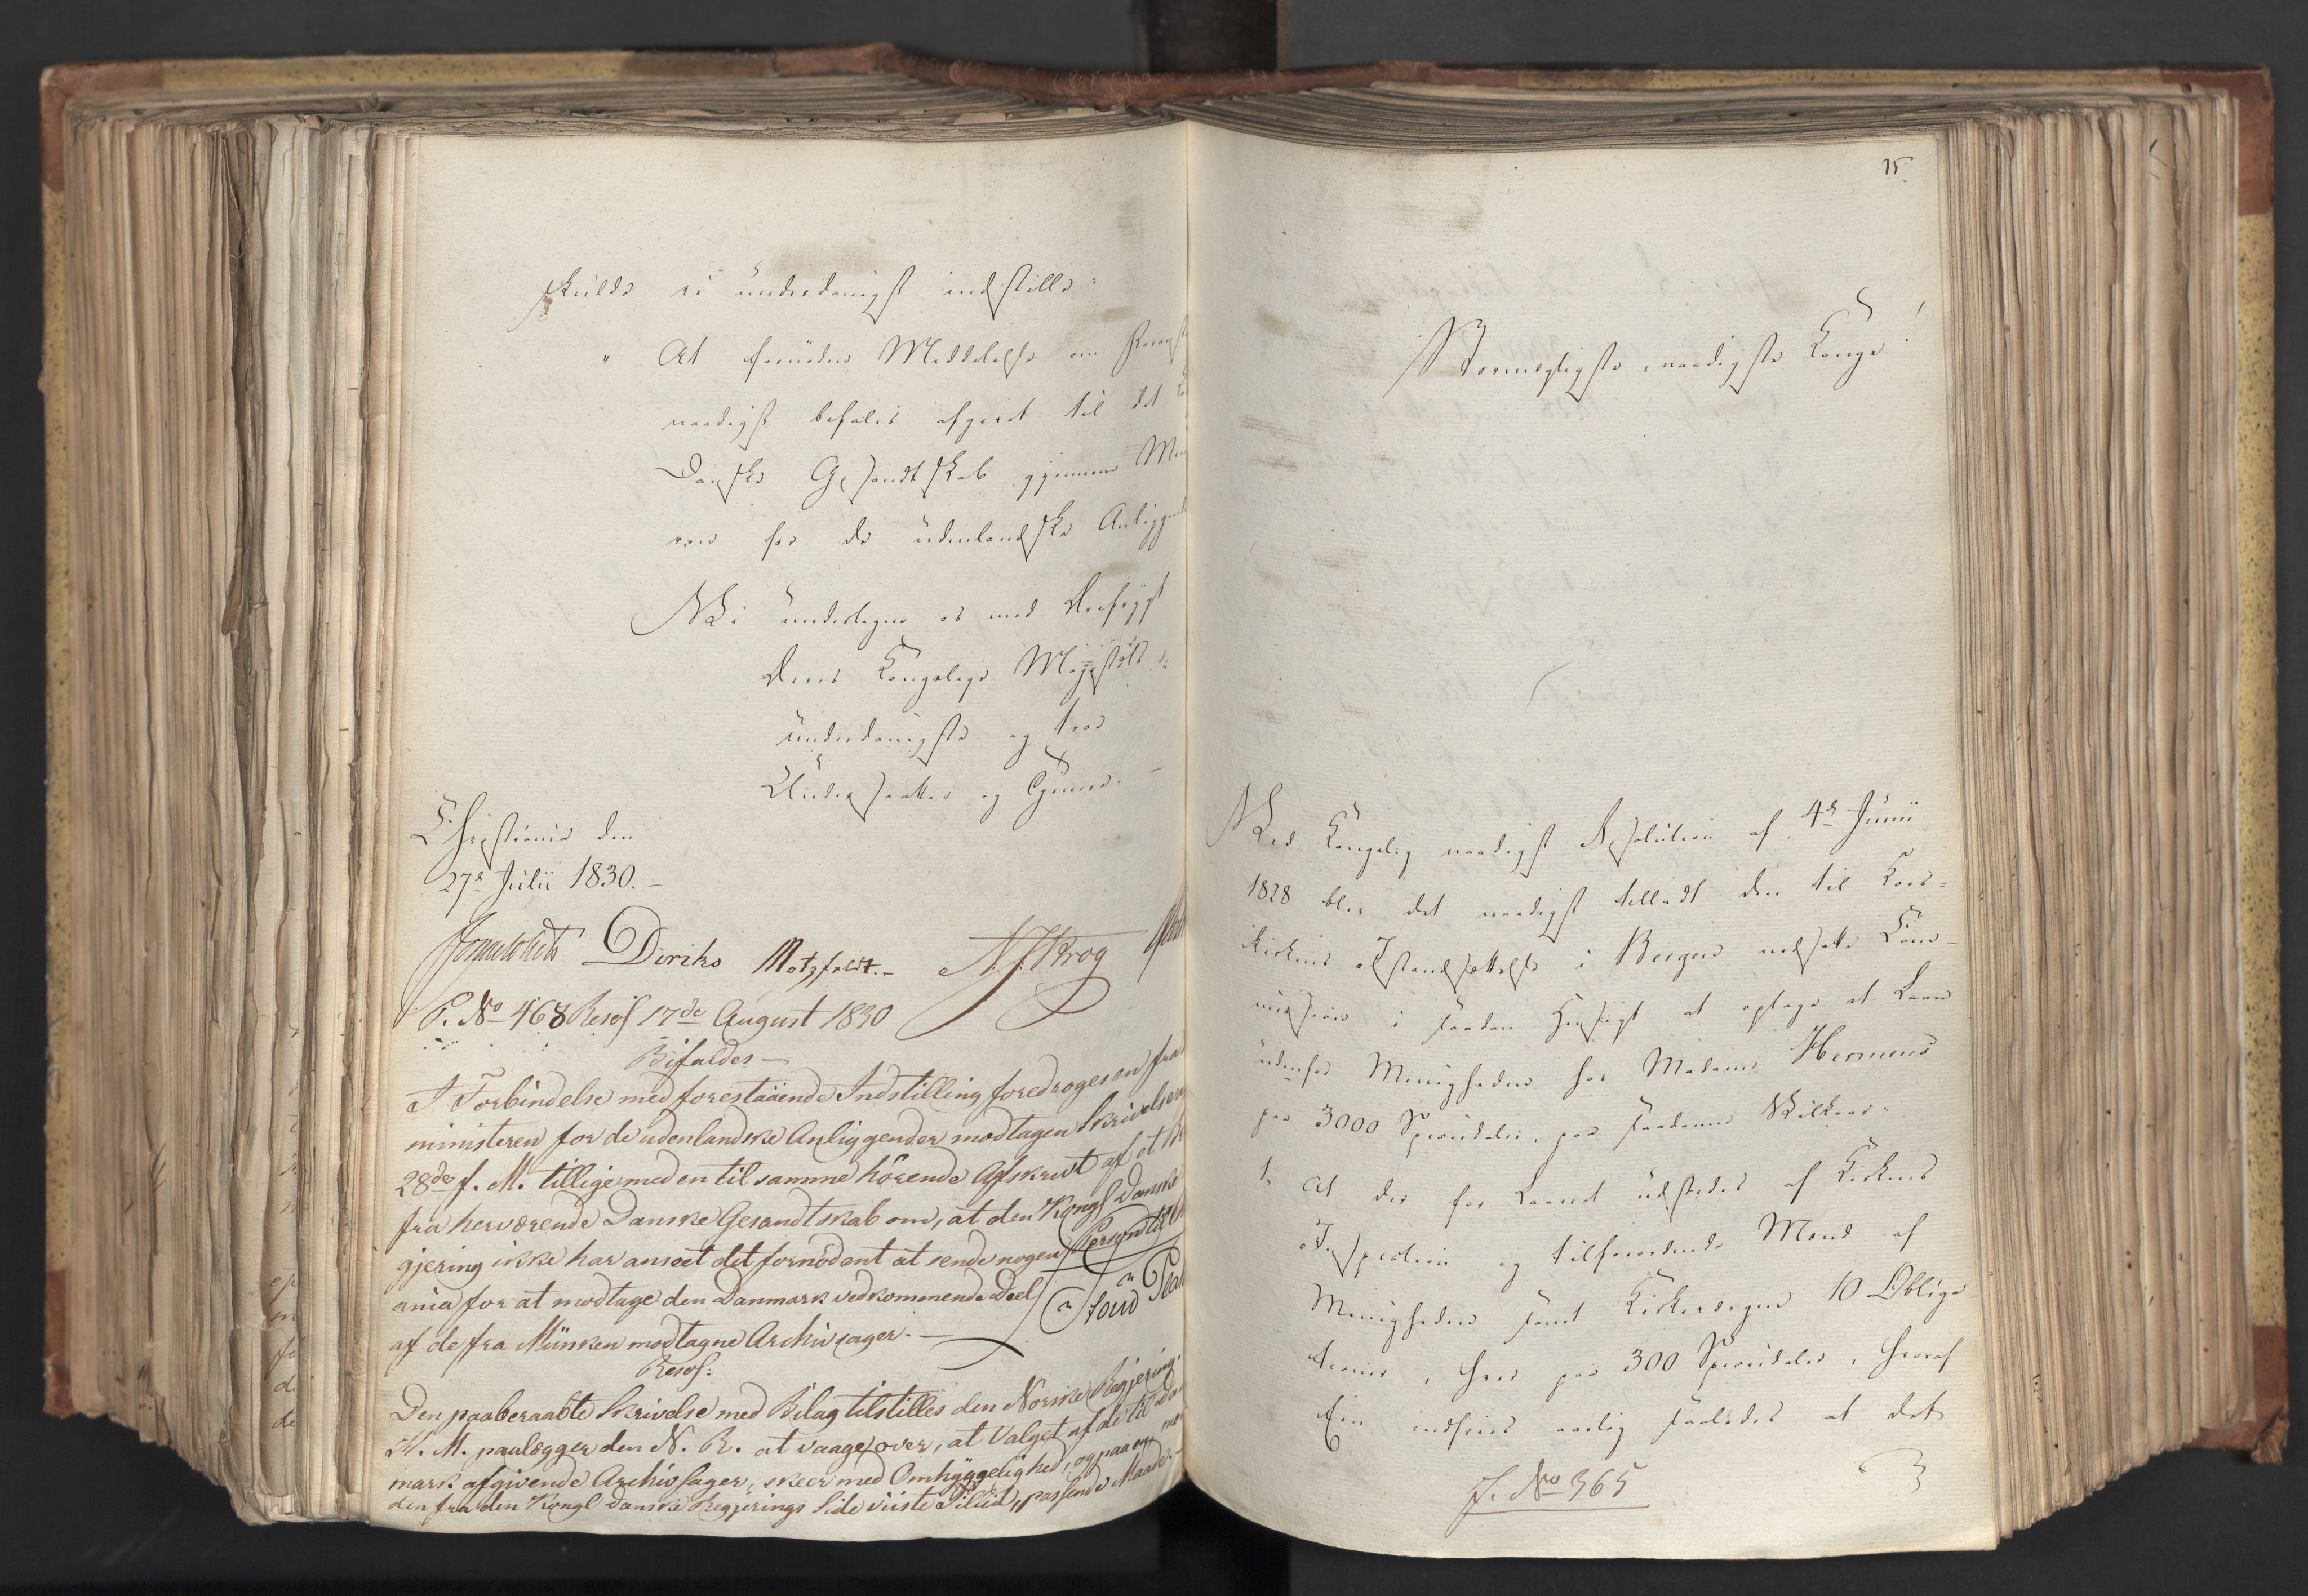 skulde vi underdanigst indstille:
" At fornøden Meddelelse om
naadigst befales afgivet til det
Danske Gesandtskab gjennem
ren for de udenlandske
Vi undertegne os med Ærefrygt
Deres Kongelige Majestæts
underdanigste og troe
Undersaatter og Tjenere. –
Christiania den
27de Julii 1830. –
Diriks Motzfeldt. – N. J. Krog
P. No 468 Resol 17de August 1830
Bifaldes –
I Forbindelse med forestaaende Indstilling foredroges en fra
ministeren for de udenlandske Anliggender modtagen Skrivelse
28de f. M. tillige med en til samme hörende Afskrivt af et
fra herværende Danske Gesandtskab om, at den Kongl Danske
gjering ikke har anseet det fornödent at sende nogen Person til
ania for at modtage den Danmark vedkommende Deel
af de fra Münken modtagne Archivsager. –
Resol:
Den paaberaabte Skrivelse med Bilag tilstilles den Norske Regjering.
H. M. paalægger den N. R. at vaage over, at Valget af de til
mark afgivende Archivsager, skeer med Omhyggelighed, og paa en
den fra den Kongl Danske Regjerings Side viiste Tillid, passende Maade. –
15.
Stormægtigste, naadigste Konge!
Ved Kongelig naadigst Resolution af 4de Junii
1828 blev det naadigst tilladt den til Kors=
kirkens Istandsættelse i Bergen nedsatte Com-
mission i saadan Hensigt at optage et Laan
udenfor Menigheden hos Madame Hermens
paa 3000 Speciedaler, paa saadanne Vilkaar:
1, At der for Laanet udstedes af Kirkens
Inspection og tilforordnede Mænd af
Menigheden samt Kirkeværgen 10 Obliga-
tioner, hver paa 300 Speciedaler, hvoraf
Een indfries aarlig saaledes at det
J. No 365